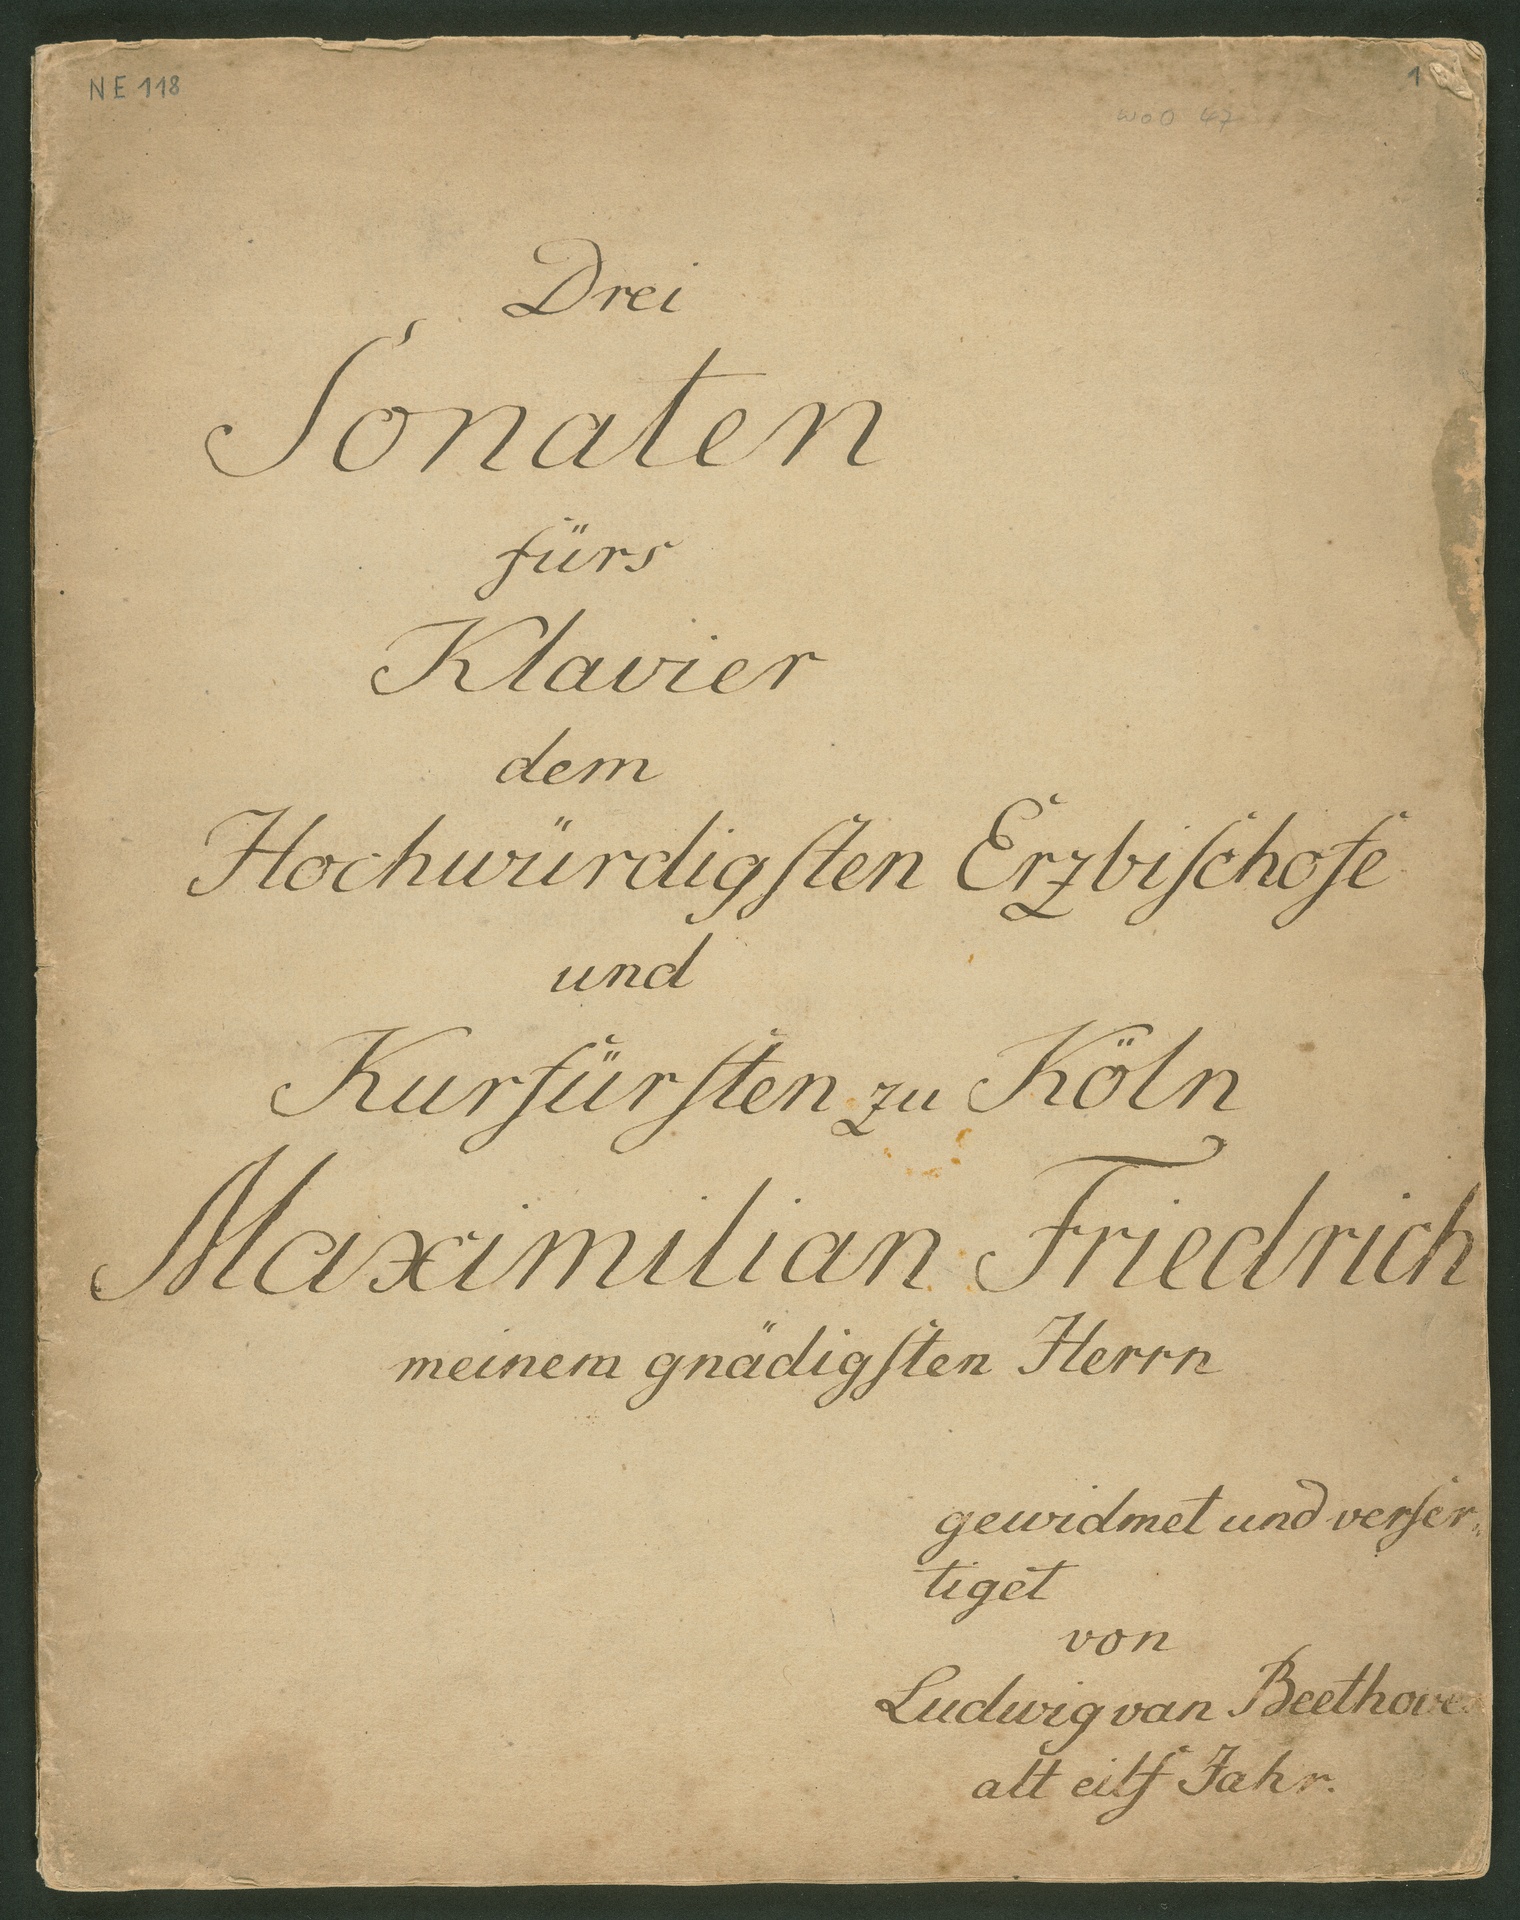 NE 118
1
WoO 47
Drei
Sonaten
fürs
Klavier
dem
Hochwürdigſten Erzbiſchofe
und
Kurfürſten zu Köln
Maximilian Friedrich
meinem gnädigſten Herrn
gewidmet und verfer-
tiget
von
Ludwig van Beethove
alt eilf Jahr.